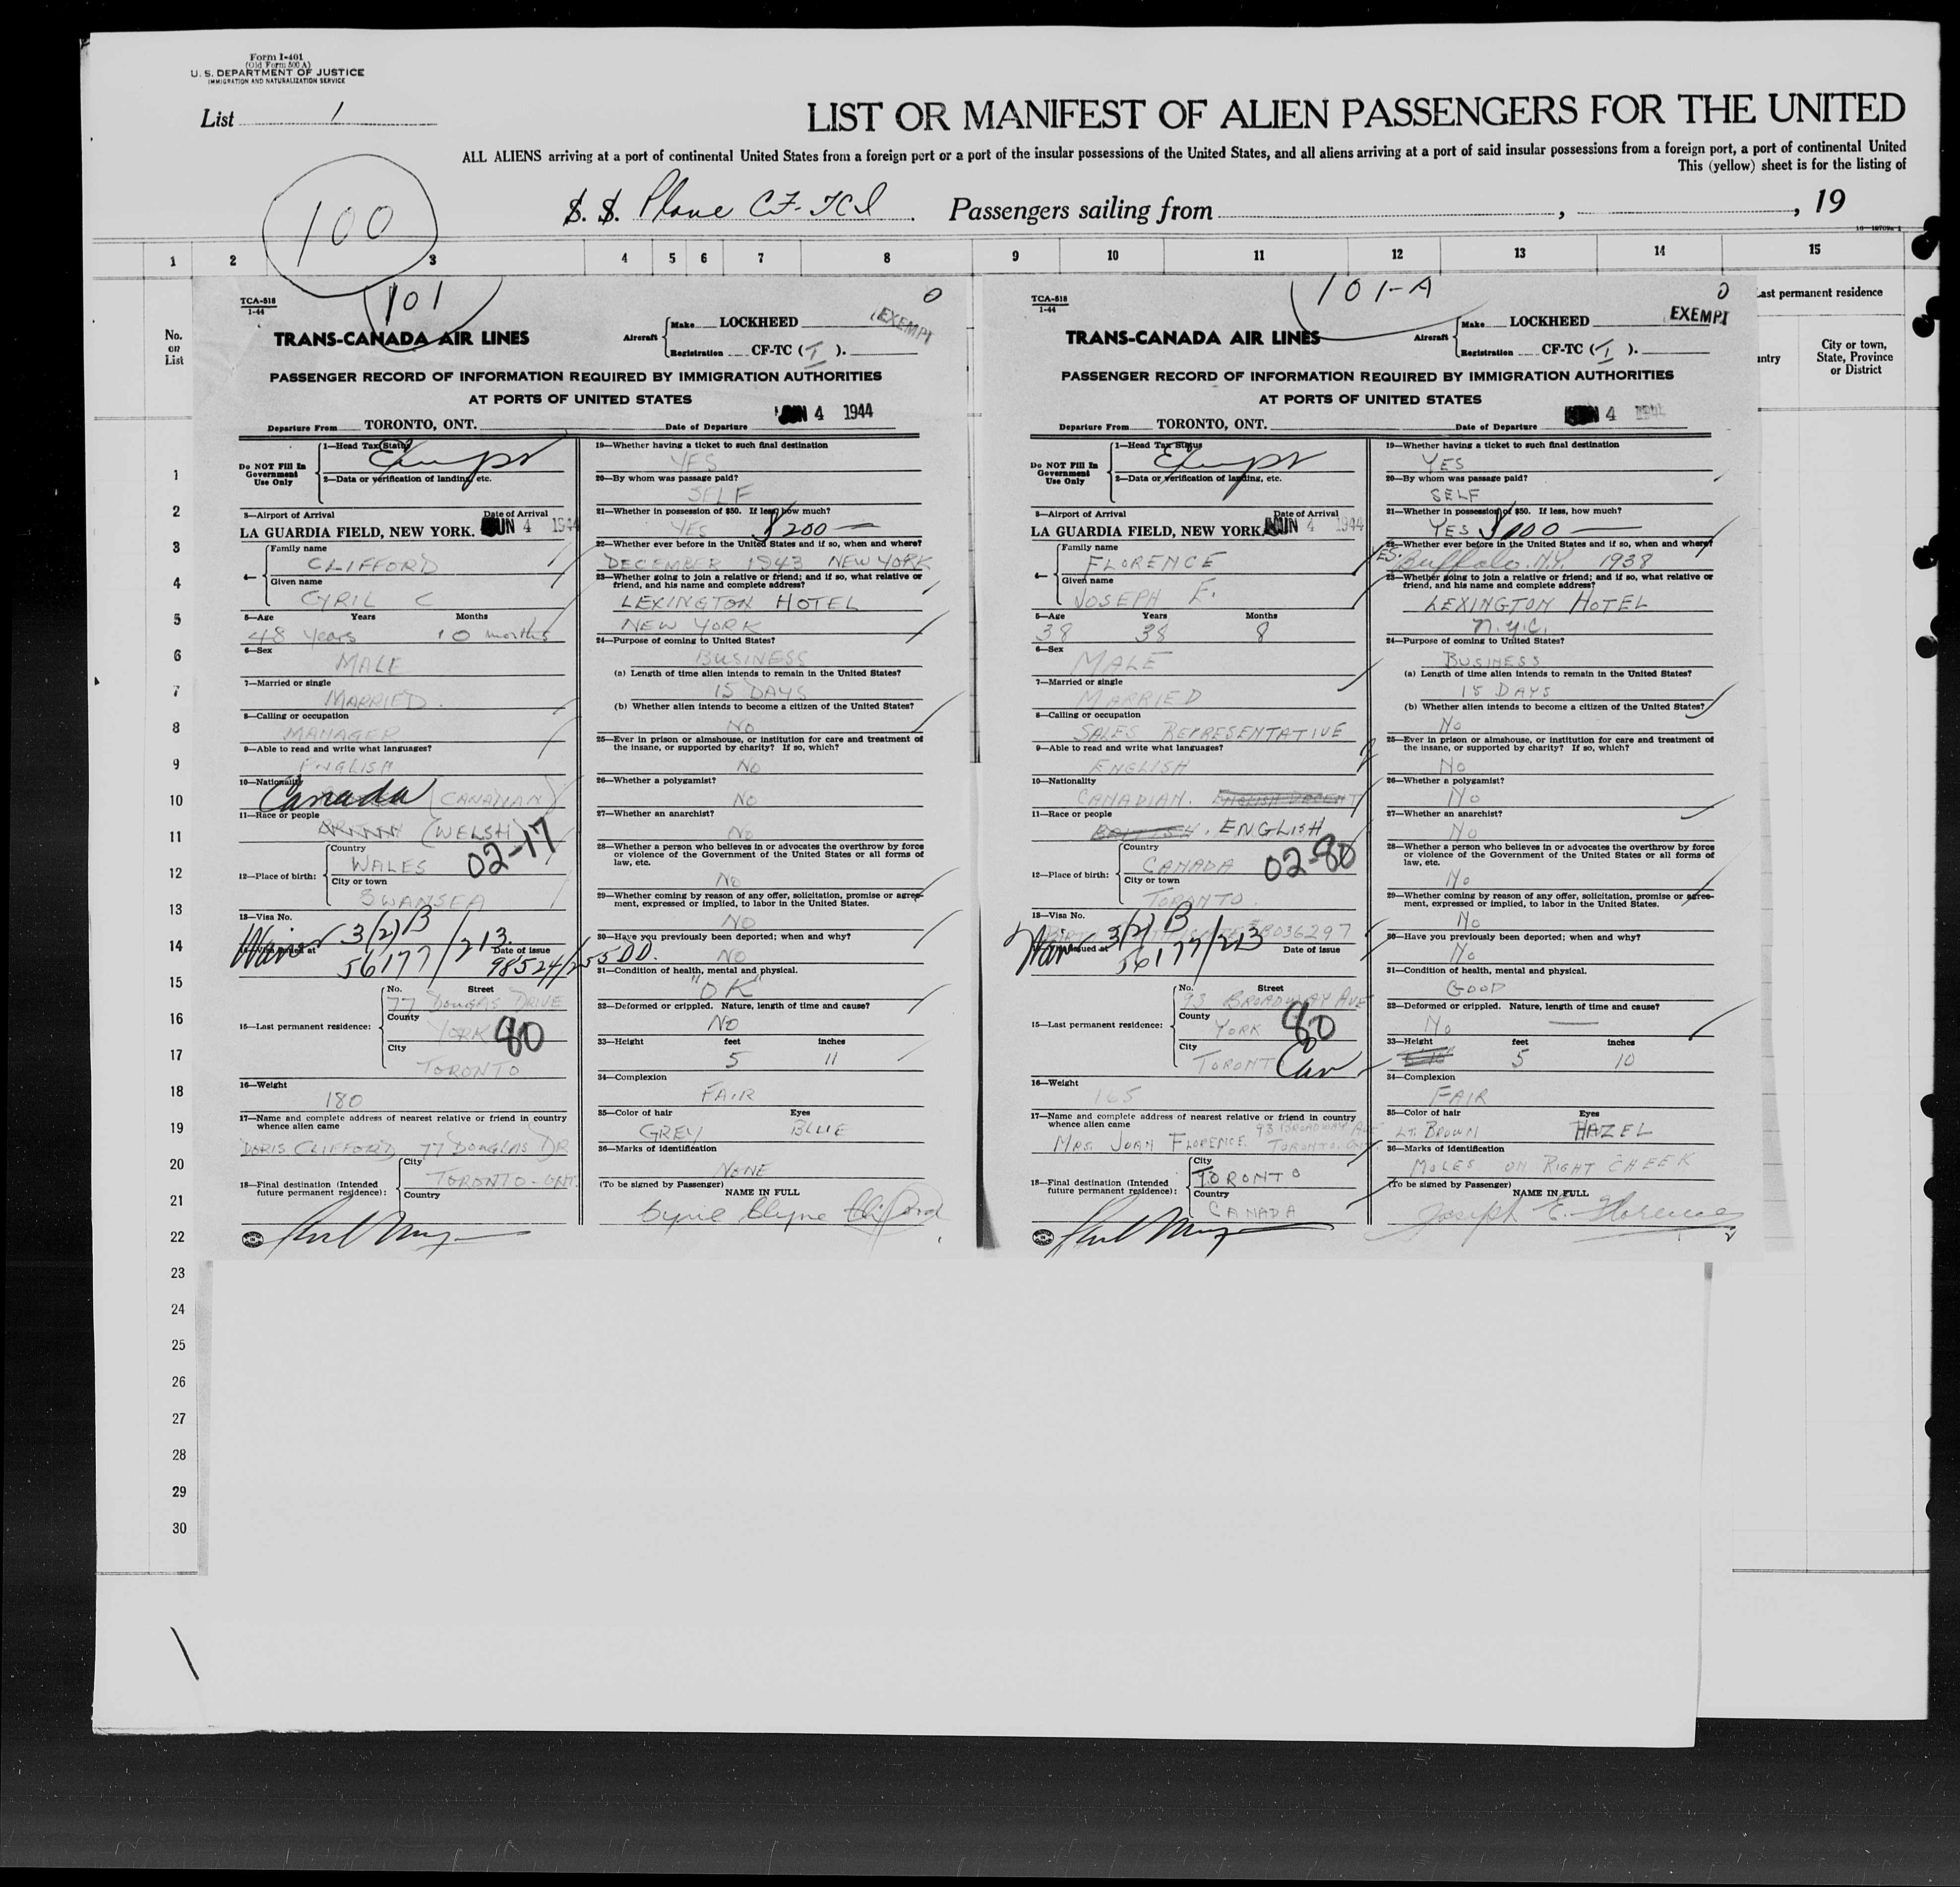 Form I-401
(Old Form 500 A)
U. S. DEPARTMENT OF JUSTICE
IMMIGRATION AND NATURALIZATION SERVICE
List 1
LIST OR MANIFEST OF ALIEN PASSENGERS FOR THE UNITED
ALL ALIENS arriving at a port of continental United States from a foreign port or a port of the insular possessions of the United States, and all aliens arriving at a port of said insular possessions from a foreign port, a port of continental United
This (yellow) sheet is for the listing of
100
S. S. Plane CF-TCI Passengers sailing from , , 19
1 2 3 4 5 6 7 8 9 10 11 12 13 14 15
No. on List
Last permanent residence
City or town, State, Province or District
101
TCA-518
1-44
0
EXEMPT
TRANS-CANADA AIR LINES
Aircraft Make LOCKHEED
Registration CF-TC ( I ).
PASSENGER RECORD OF INFORMATION REQUIRED BY IMMIGRATION AUTHORITIES
AT PORTS OF UNITED STATES
JUN 4 1944
Departure From TORONTO, ONT. Date of Departure
Do NOT Fill In Government Use Only
1—Head Tax Status
Exempt
2—Data or verification of landing, etc.
3—Airport of Arrival Date of Arrival
LA GUARDIA FIELD, NEW YORK. JUN 4 1944
4— Family name
CLIFFORD
Given name
CYRIL C
5—Age Years Months
48 years 10 months
6—Sex
MALE
7—Married or single
MARRIED.
8—Calling or occupation
MANAGER
9—Able to read and write what languages?
ENGLISH
10—Nationality
Canada (CANADIAN)
11—Race or people
(WELSH)
12—Place of birth: Country
WALES 02-17
City or town
SWANSEA
13—Visa No.
Waiver 3/(2)B
Date of issue
56177/213. 98524/255DD.
15—Last permanent residence: No. Street
77 DOUGLAS DRIVE
County
YORK 80
City
TORONTO
16—Weight
180
17—Name and complete address of nearest relative or friend in country whence alien came
DORIS CLIFFORD 77 DOUGLAS DR
18—Final destination (Intended future permanent residence): City
TORONTO-ONT.
Country
19—Whether having a ticket to such final destination
YES
20—By whom was passage paid?
SELF
21—Whether in possession of $50. If less, how much?
YES $200—
22—Whether ever before in the United States and if so, when and where?
DECEMBER 1943 NEW YORK
23—Whether going to join a relative or friend; and if so, what relative or friend, and his name and complete address?
LEXINGTON HOTEL
NEW YORK
24—Purpose of coming to United States?
BUSINESS
(a) Length of time alien intends to remain in the United States?
15 DAYS
(b) Whether alien intends to become a citizen of the United States?
NO
25—Ever in prison or almshouse, or institution for care and treatment of the insane, or supported by charity? If so, which?
NO
26—Whether a polygamist?
NO
27—Whether an anarchist?
NO
28—Whether a person who believes in or advocates the overthrow by force or violence of the Government of the United States or all forms of law, etc.
NO
29—Whether coming by reason of any offer, solicitation, promise or agreement, expressed or implied, to labor in the United States.
NO
30—Have you previously been deported; when and why?
NO
31—Condition of health, mental and physical.
"OK"
32—Deformed or crippled. Nature, length of time and cause?
NO
33—Height feet inches
5 11
34—Complexion
FAIR
35—Color of hair Eyes
GREY BLUE
36—Marks of identification
NONE
(To be signed by Passenger) NAME IN FULL
Clifford
101-A
TCA-518
1-44
0
EXEMPT
TRANS-CANADA AIR LINES
Aircraft Make LOCKHEED
Registration CF-TC ( I ).
PASSENGER RECORD OF INFORMATION REQUIRED BY IMMIGRATION AUTHORITIES
AT PORTS OF UNITED STATES
JUN 4 1944
Departure From TORONTO, ONT. Date of Departure
Do NOT Fill In Government Use Only
1—Head Tax Status
Exempt
2—Data or verification of landing, etc.
3—Airport of Arrival Date of Arrival
LA GUARDIA FIELD, NEW YORK. JUN 4 1944
4— Family name
FLORENCE
Given name
JOSEPH E.
5—Age Years Months
38 38 8
6—Sex
MALE
7—Married or single
MARRIED
8—Calling or occupation
SALES REPRESENTATIVE
9—Able to read and write what languages?
ENGLISH
10—Nationality
CANADIAN. ENGLISH DECENT
11—Race or people
BRITISH. ENGLISH
12—Place of birth: Country
CANADA 02-80
City or town
TORONTO.
13—Visa No.
Waiver 3/(2)B
BIRTH CERTIFICATE B036297
Issued at Date of issue
56177/213
15—Last permanent residence: No. Street
93 BROADWAY AVE
County
YORK 80
City
TORONTO Can
16—Weight
165
17—Name and complete address of nearest relative or friend in country whence alien came
MRS. JOAN FLORENCE. 93 BROADWAY AVE TORONTO. ONT.
18—Final destination (Intended future permanent residence): City
TORONTO
Country
CANADA
19—Whether having a ticket to such final destination
YES
20—By whom was passage paid?
SELF
21—Whether in possession of $50. If less, how much?
YES $100—
22—Whether ever before in the United States and if so, when and where?
YES. Buffalo. N.Y. 1938
23—Whether going to join a relative or friend; and if so, what relative or friend, and his name and complete address?
LEXINGTON HOTEL
N.Y.C.
24—Purpose of coming to United States?
BUSINESS
(a) Length of time alien intends to remain in the United States?
15 DAYS
(b) Whether alien intends to become a citizen of the United States?
No
25—Ever in prison or almshouse, or institution for care and treatment of the insane, or supported by charity? If so, which?
No
26—Whether a polygamist?
No
27—Whether an anarchist?
No
28—Whether a person who believes in or advocates the overthrow by force or violence of the Government of the United States or all forms of law, etc.
No
29—Whether coming by reason of any offer, solicitation, promise or agreement, expressed or implied, to labor in the United States.
No
30—Have you previously been deported; when and why?
No
31—Condition of health, mental and physical.
GOOD
32—Deformed or crippled. Nature, length of time and cause?
No —
33—Height feet inches
5 10
34—Complexion
FAIR
35—Color of hair Eyes
LT. BROWN HAZEL
36—Marks of identification
MOLES ON RIGHT CHEEK
(To be signed by Passenger) NAME IN FULL
Joseph E. Florence
1
2
3
4
5
6
7
8
9
10
11
12
13
14
15
16
17
18
19
20
21
22
23
24
25
26
27
28
29
30